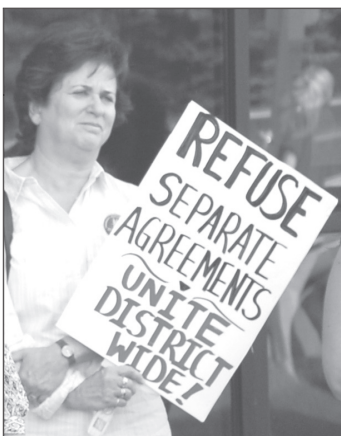 REFUSE
SEPARATE
AGREEMENTS
UNITE
DISTRICT
WIDE!